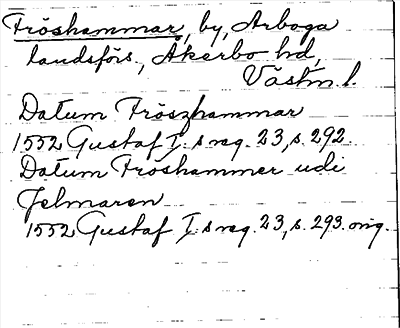 Fröshammar, by, Arboga
landsförs., Åkerbo hd,
Västm. l.
Datum Fröszhammar
1552 Gustaf I:s reg. 23, s. 292
Datum Froshammer udi
Jelmaren
1552 Gustaf I:s reg. 23, s. 293. orig.